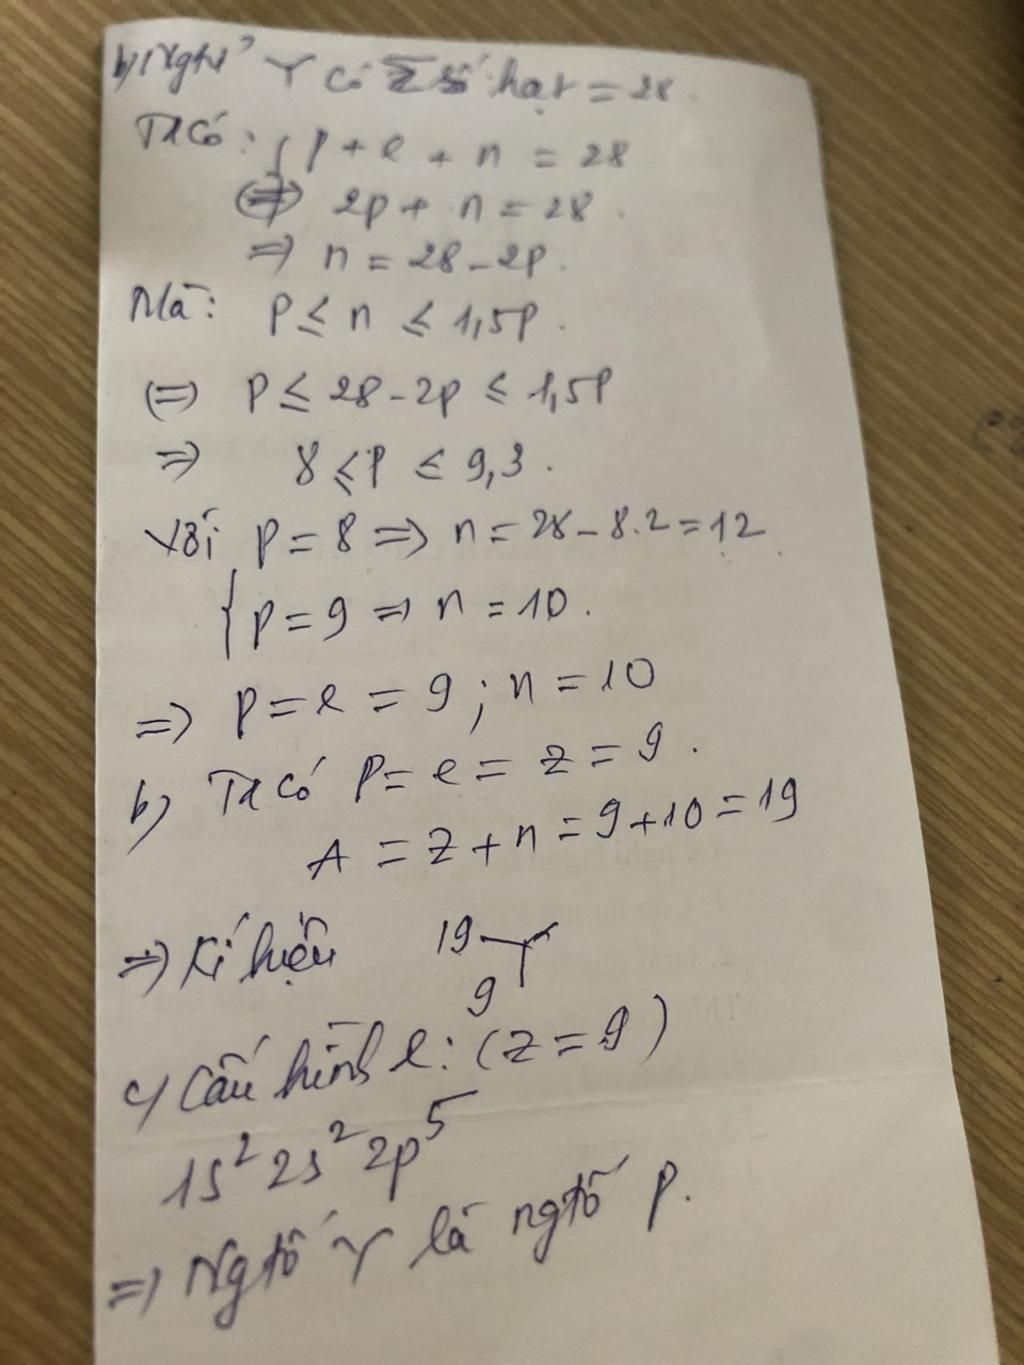 b) Ngtử Y có Σ số hạt = 28.
Ta có: { p + e + n = 28
(=) 2p + n = 28.
=> n = 28 - 2p.
Mà: P ≤ n ≤ 1,5P.
(=) P ≤ 28 - 2p ≤ 1,5P
=> 8 ≤ P ≤ 9,3.
Với p = 8 => n = 28 - 8.2 = 12
{ p = 9 => n = 10.
=> p = e = 9; n = 10
b) Ta có P = e = z = 9.
A = Z + n = 9 + 10 = 19
=> Kí hiệu ¹⁹₉Y
c) Cấu hình e: (z = 9)
1s² 2s² 2p⁵
=> Ngtố Y là ngtố p.